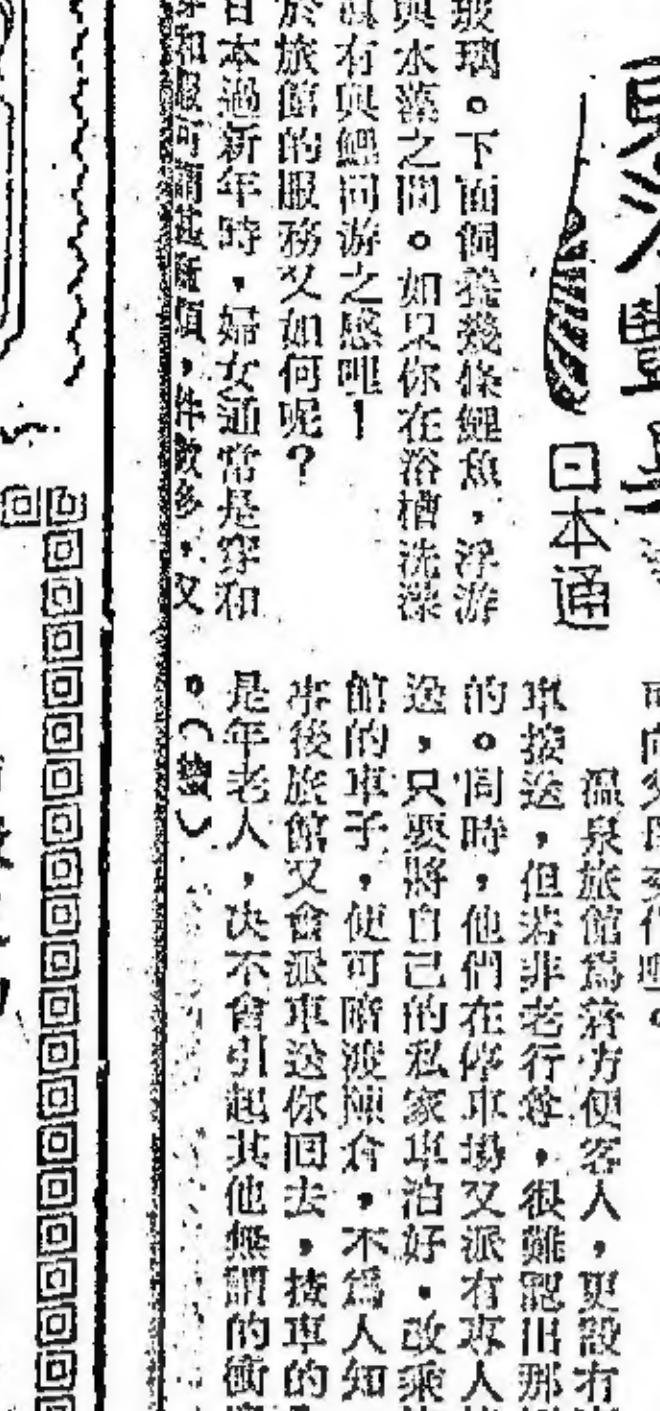 日本通
玻璃。下面飼養幾條鯉魚，浮游
與水藻之間。如果你在浴槽洗澡
真有與鯉同游之感哩！
於旅館的服務又如何呢？
日本過新年時，婦女通常是穿和
穿和服可謂甚麻煩，件數多，又
可向父母交代哩。
溫泉旅館為着方便客人，更設有
車接送，但若非老行尊，很難認出那
的。同時，他們在停車場又派有專人
逸，只要將自己的私家車泊好，改乘
館的車子，便可暗渡陳倉，不為人知
事後旅館又會派車送你回去，揸車的
是年老人，决不會引起其他無謂的衝
。（續）